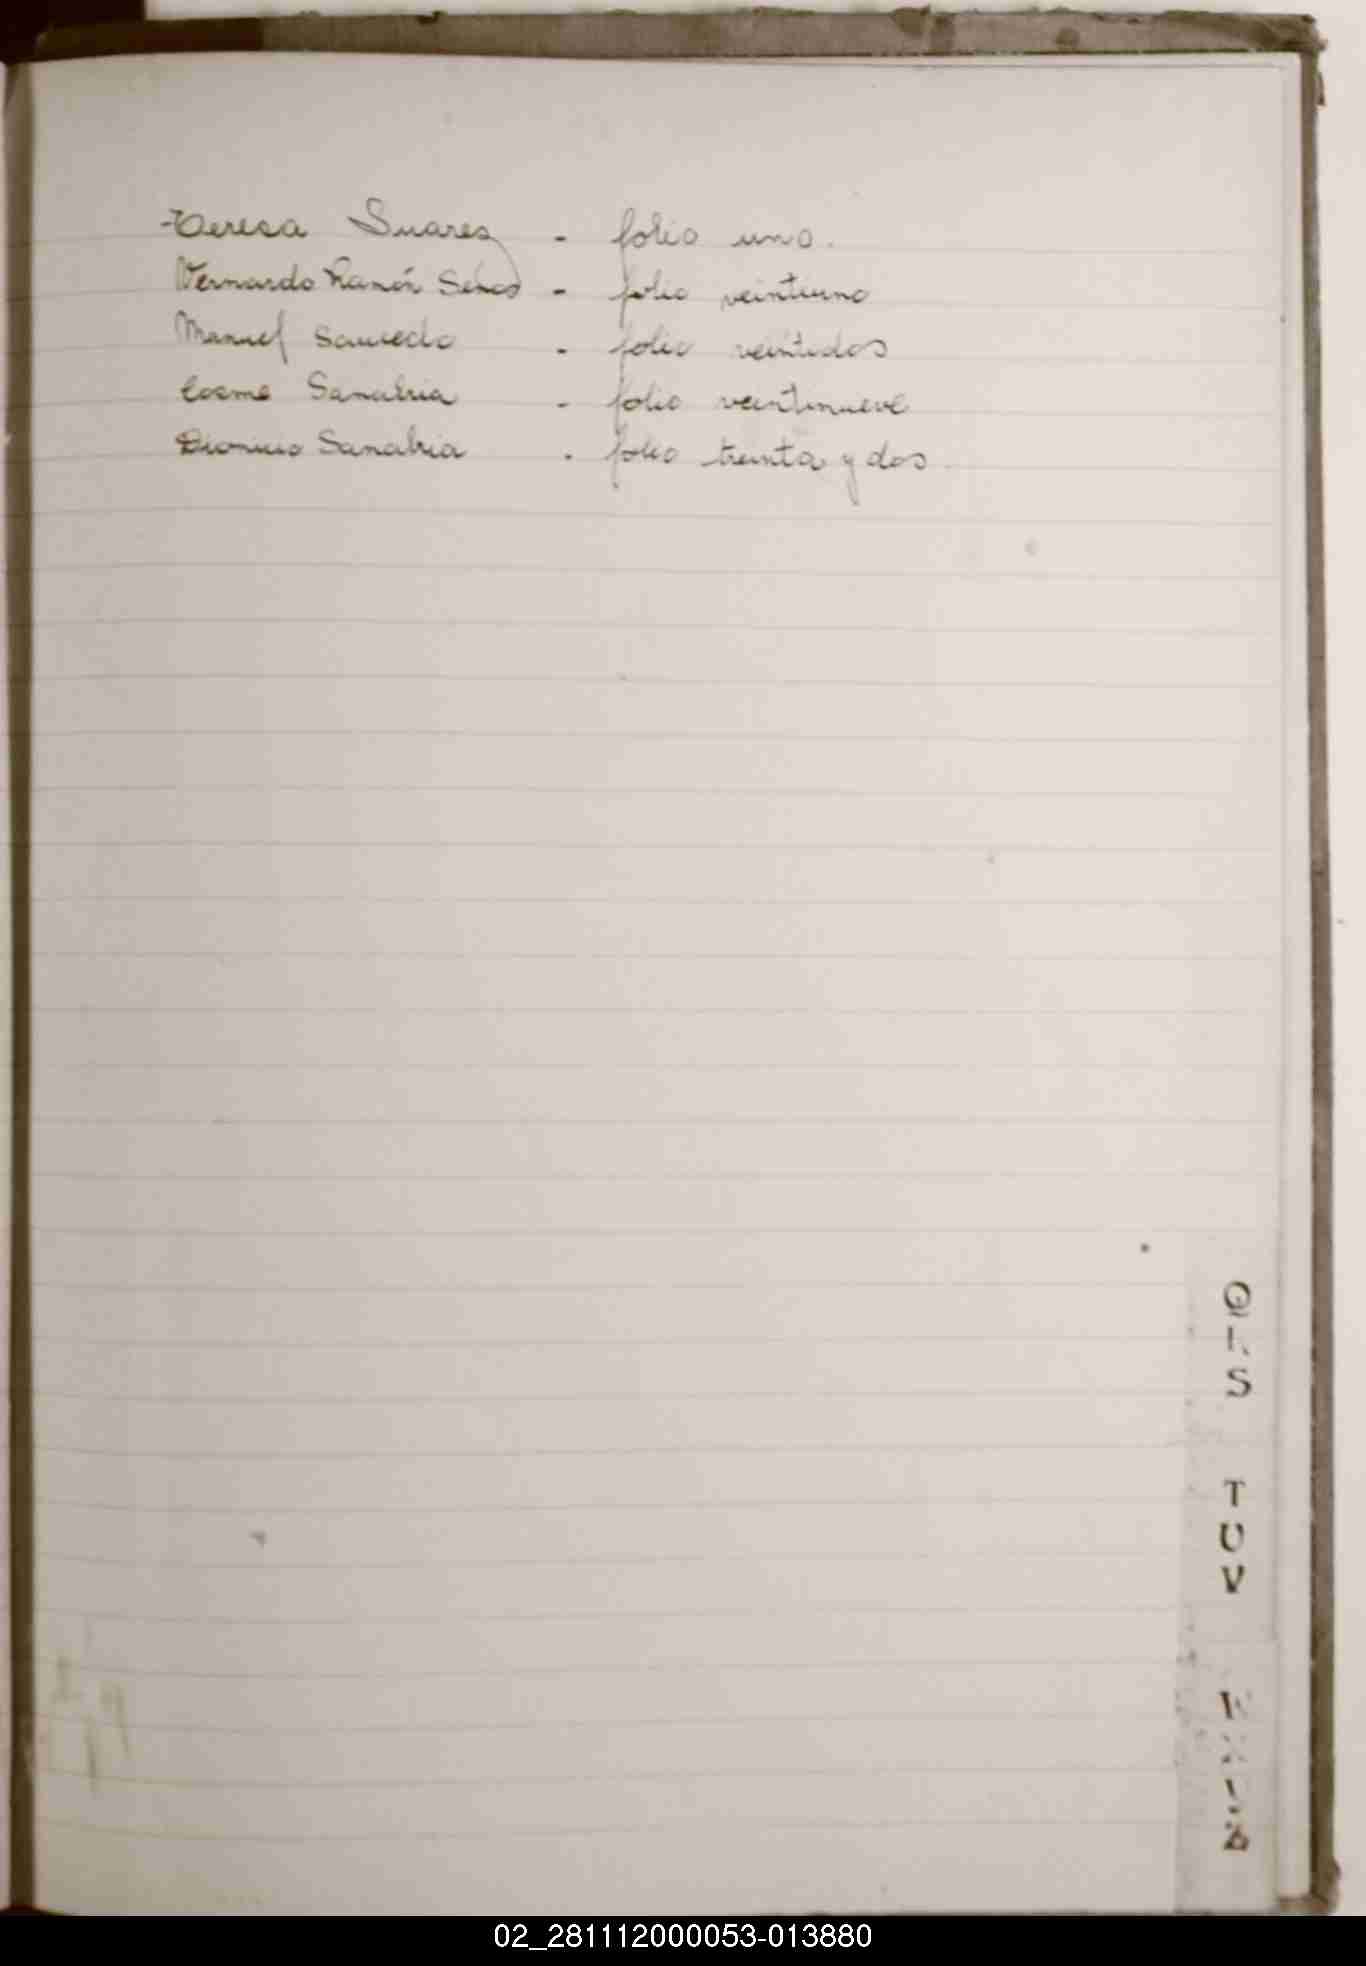 Teresa Suarez - folio uno.
Vernardo Ramón - folio veintiuno
Manuel Saucedo - folio veintidos
Cosme Sanabria - folio veintinueve
Dionicio Sanabria - folio treinta y dos.
Q
R
S
T
U
V
W
X
Y
Z
02_281112000053-013880